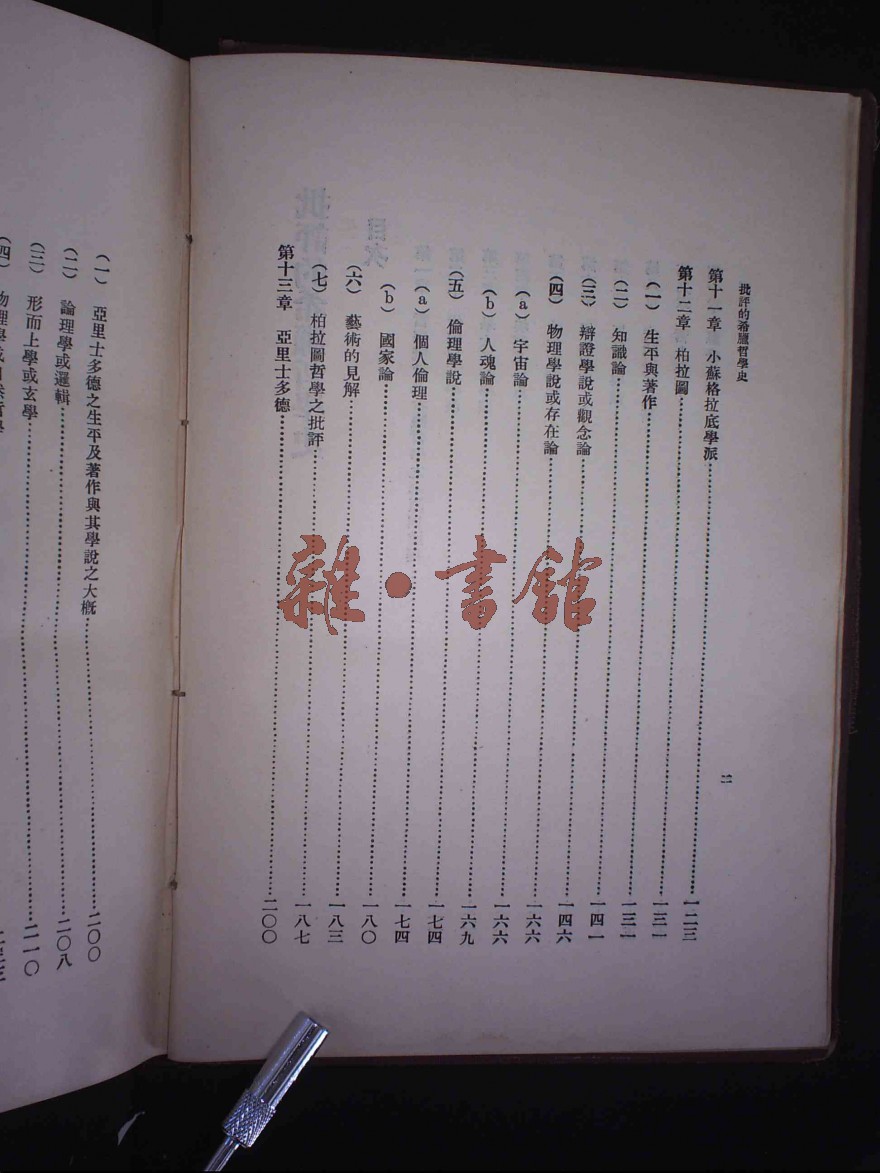 批評的希臘哲學史
二
第十一章 小蘇格拉底學派……一二三
第十二章 柏拉圖……一三一
(一) 生平與著作……一三一
(二) 知識論……一四一
(三) 辯證學說或觀念論……一四六
(四) 物理學說或存在論……一六六
(a) 宇宙論……一六六
(b) 人魂論……一六九
(五) 倫理學說……一七四
(a) 個人倫理……一七四
(b) 國家論……一八〇
(六) 藝術的見解……一八三
(七) 柏拉圖哲學之批評……一八七
第十三章 亞里士多德……二〇〇
(一) 亞里士多德之生平及著作與其學說之大概……二〇〇
(二) 論理學或邏輯……二〇八
(三) 形而上學或玄學……二一〇
雜·書館